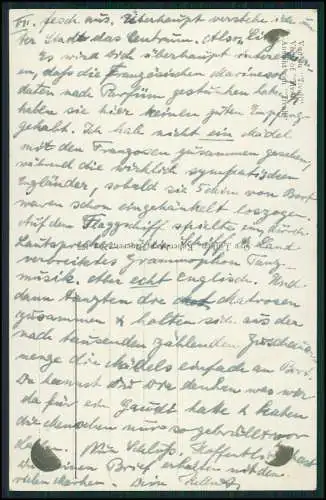 fesch aus. Überhaupt verstehe ich un-
ter Stadt das Centrum. Also
Es wird dich überhaupt interessier-
en, dass die Französischen Marinesol-
daten nach Parfüm gestunken haben
haben sie hier keinen guten Empfang
gehabt. Ich hab nicht ein Mädel
mit den Franzosen zusammen gesehen,
während die wirklich sympatischen
Engländer, sobald sie von Boot
waren schon eingehänkelt loszogen.
Auf dem Flaggschiff spielte ein, durch
Lautsprecher Land
verbreitetes Grammophon Tanz-
musik. Aber echt Englisch. Und
dann tanzten die Matrosen
zusammen & holten sich aus der
nach tausenden zählenden Zuschauer-
menge die Mädels einfach an Bord.
Du kannst dir vorstellen was wir
da für ein Gaudi hatte & haben
die Menschen nur so gebrüllt vor
Lachen. Nun Schluss. Hoffentlich hast
du meinen Brief erhalten mit den
vielen Marken. Dein